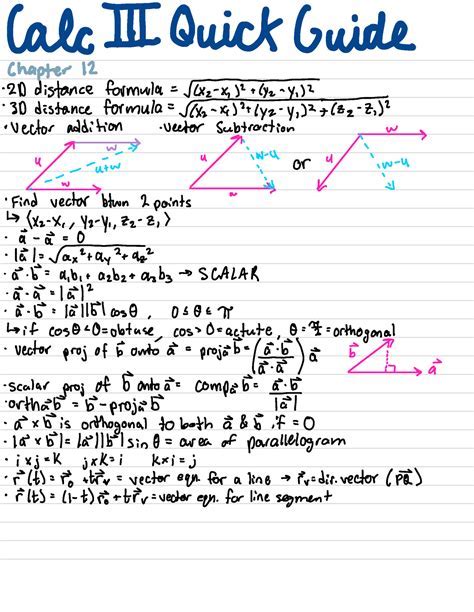 Calc III Quick Guide
Chapter 12
·2D distance formula = √(x₂-x₁)²+(y₂-y₁)²
·3D distance formula = √(x₂-x₁)²+(y₂-y₁)²+(z₂-z₁)²
·Vector addition ·vector subtraction
u w u+w w u w-u w or w u w-u
·Find vector btwn 2 points
↳ ⟨x₂-x₁, y₂-y₁, z₂-z₁⟩
·a⃗ - a⃗ = 0
·|a⃗| = √aₓ²+aᵧ²+a_z²
·a⃗·b⃗ = a₁b₁ + a₂b₂ + a₃b₃ → SCALAR
·a⃗·a⃗ = |a⃗|²
·a⃗·b⃗ = |a⃗||b⃗|cosθ, 0≤θ≤π
↳if cosθ<0=obtuse, cos>0=actute, θ=π/2=orthogonal
·vector proj of b⃗ onto a⃗ = proj_a⃗ b⃗ = (a⃗·b⃗ / a⃗·a⃗) a⃗
b⃗ a⃗
·scalar proj of b⃗ onto a⃗ = comp_a⃗ b⃗ = a⃗·b⃗ / |a⃗|
·orth_a⃗ b⃗ = b⃗ - proj_a⃗ b⃗
·a⃗×b⃗ is orthogonal to both a⃗ & b⃗ if = 0
·|a⃗×b⃗| = |a⃗||b⃗|sinθ = area of parallelogram
·i×j=k j×k=i k×i=j
·r⃗(t) = r⃗₀ + tr⃗ᵥ = vector eqn. for a line → r⃗ᵥ=dir. vector (PQ⃗)
·r⃗(t) = (1-t)r⃗₀ + tr⃗ᵥ = vector eqn. for line segment